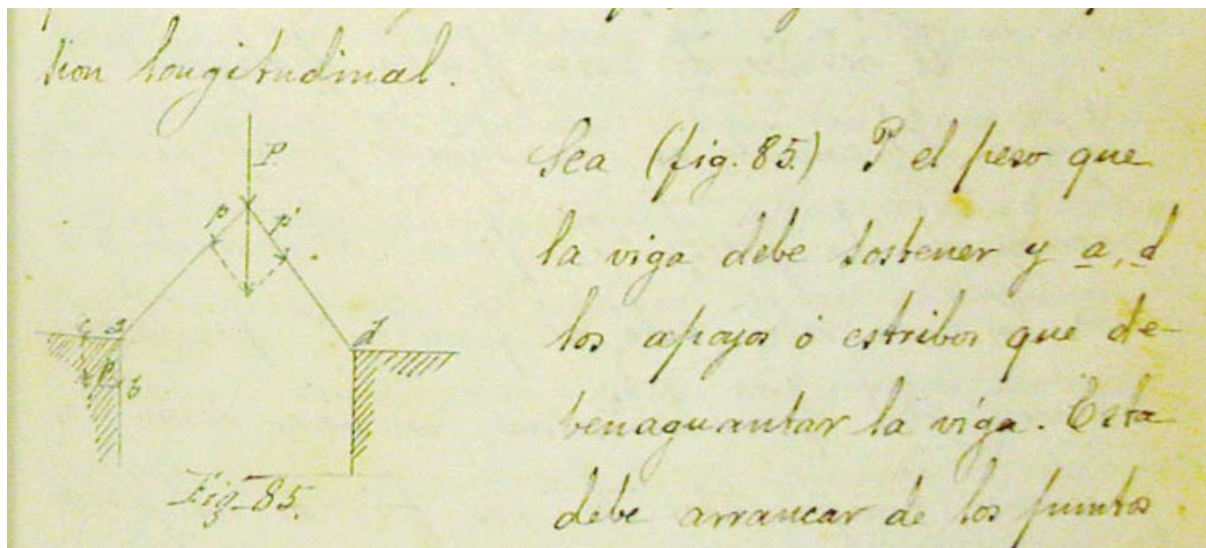 sion longitudinal.
Sea (fig. 85.) P el peso que
la viga debe sostener y a, d
los apoyos ó estribos que de-
benaguantar la viga. Esta
debe arrancar de los puntos
P
p p'
c a
d
p b
Fig-85.